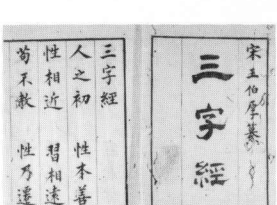 宋王伯厚纂
三字經
三字經
人之初 性本善
性相近 習相遠
苟不教 性乃遷